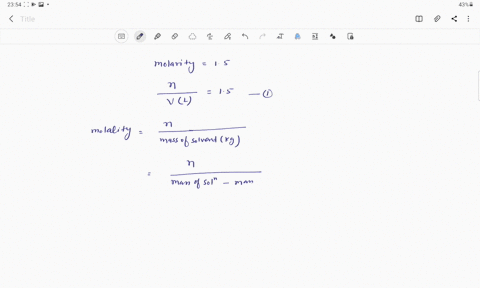 23:54
43%
Title
molarity = 1.5
n
V(L) = 1.5 — ①
molality = n
mass of solvent (kg)
= n
mass of solⁿ - mass